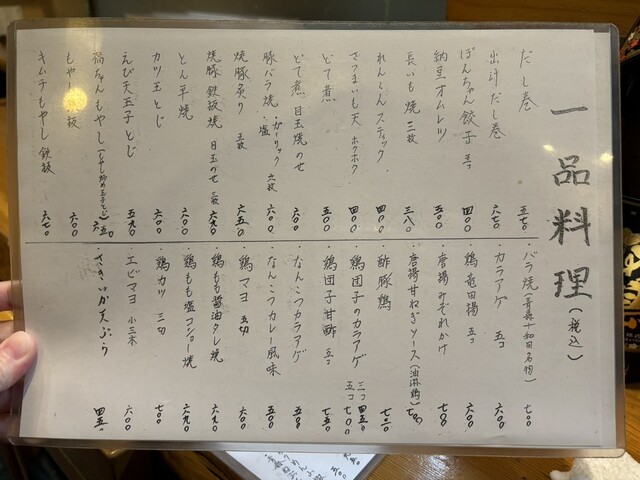 一品料理(税込)
だし巻 五七〇
出汁だし巻 六七〇
ぽんちゃん餃子 五コ 四〇〇
納豆オムレツ 五〇〇
長いも焼 三枚 三八〇
れんこんスティック 四〇〇
さつまいも天 ホクホク 四〇〇
どて煮 五〇〇
どて煮 目玉焼のせ 六〇〇
豚バラ焼 ・ガーリック ・塩 六枚 六〇〇
焼豚炙り 五枚 六五〇
焼豚鉄板焼 目玉のせ 三枚 六九〇
とん平焼 六〇〇
カツ玉とじ 六〇〇
えび天玉子とじ 五九〇
福ちゃんもやし(もやし炒め玉子とじ) 六五〇
もやし鉄板 六〇〇
キムチもやし鉄板 六七〇
・バラ焼(青森十和田名物) 七〇〇
・カラアゲ 五コ 六〇〇
・鶏竜田揚 五コ 六〇〇
・唐揚みぞれかけ 七〇〇
・唐揚甘ねぎソース(油淋鶏) 七〇〇
・酢豚鶏 七二〇
・鶏団子のカラアゲ 三コ 四五〇 五コ 七〇〇
・鶏団子甘酢 五コ 七五〇
・なんこつカラアゲ 五五〇
・なんこつカレー風味 五五〇
・鶏マヨ 五切 六〇〇
・鶏もも醤油タレ焼 六九〇
・鶏もも塩コショー焼 六九〇
・鶏カツ 三切 七〇〇
・エビマヨ 小三本 六〇〇
・さきいか天ぷら 四五〇